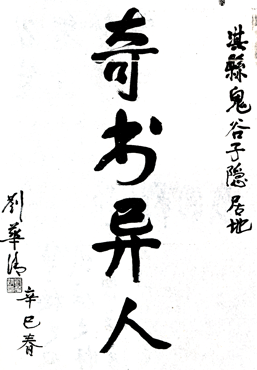 淇縣鬼谷子隐居地
奇书异人
劉華清
辛巳春